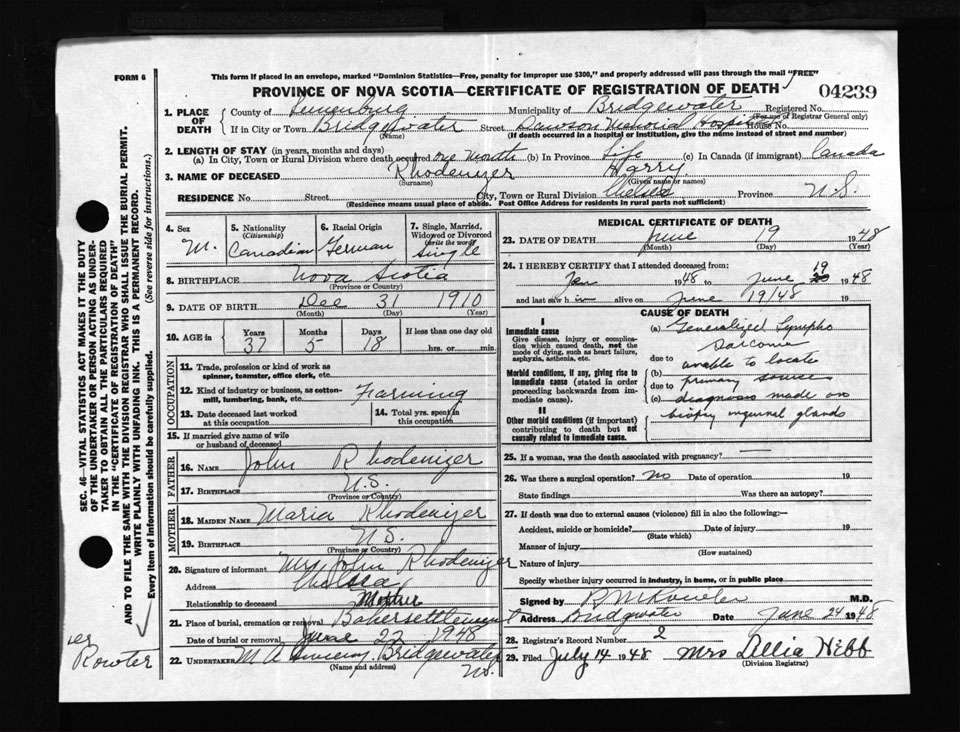 FORM 6
This form if placed in an envelope, marked "Dominion Statistics—Free, penalty for improper use $300," and properly addressed will pass through the mail "FREE"
PROVINCE OF NOVA SCOTIA—CERTIFICATE OF REGISTRATION OF DEATH 04239
1. PLACE OF DEATH
County of Lunenburg Municipality of Bridgewater Registered No.
(For use of Registrar General only)
If in City or Town Bridgewater Street Dawson Memorial Hospital House No.
(Name) (If death occurred in a hospital or institution, give the name instead of street and number)
2. LENGTH OF STAY (in years, months and days)
(a) In City, Town or Rural Division where death occurred one month (b) In Province Life (c) In Canada (if immigrant) Canada
3. NAME OF DECEASED Rhodenizer Harry
(Surname) (Given name or names)
RESIDENCE No. Street City, Town or Rural Division Chelsea Province N.S.
(Residence means usual place of abode. Post Office Address for residents in rural parts not sufficient)
4. Sex M.
5. Nationality (Citizenship) Canadian
6. Racial Origin German
7. Single, Married, Widowed or Divorced (write the word) Single
8. BIRTHPLACE Nova Scotia
(Province or Country)
9. DATE OF BIRTH Dec 31 1910
(Month) (Day) (Year)
10. AGE in Years 37 Months 5 Days 18 If less than one day old hrs. or min.
OCCUPATION
11. Trade, profession or kind of work as spinner, teamster, office clerk, etc.
12. Kind of industry or business, as cotton-mill, lumbering, bank, etc. Farming
13. Date deceased last worked at this occupation
14. Total yrs. spent in this occupation
15. If married give name of wife or husband of deceased
FATHER
16. NAME John Rhodenizer
17. BIRTHPLACE N.S.
(Province or Country)
MOTHER
18. MAIDEN NAME Maria Rhodenizer
19. BIRTHPLACE N.S.
(Province or Country)
20. Signature of informant Mrs John Rhodenizer
Address Chelsea
Relationship to deceased Mother
21. Place of burial, cremation or removal Bakersettlement
Date of burial or removal June 22 1948
22. UNDERTAKER M A Bridgewater
(Name and address) N.S.
MEDICAL CERTIFICATE OF DEATH
23. DATE OF DEATH June 19 1948
(Month) (Day) (Year)
24. I HEREBY CERTIFY that I attended deceased from:
Jan 1948 to June 19 1948
and last saw him alive on June 19/48 19
CAUSE OF DEATH
I
Immediate cause
Give disease, injury or complication which caused death, not the mode of dying, such as heart failure, asphyxia, asthenia, etc.
(a) Generalized Lympho Sarcoma
due to
Morbid conditions, if any, giving rise to immediate cause (stated in order proceeding backwards from immediate cause)
(b) unable to locate
due to primary source
(c) diagnosis made on
II
Other morbid conditions (if important) contributing to death but not causally related to immediate cause.
biopsy inguinal glands
25. If a woman, was the death associated with pregnancy? —
26. Was there a surgical operation? no Date of operation 19
State findings Was there an autopsy?
27. If death was due to external causes (violence) fill in also the following:—
Accident, suicide or homicide? Date of injury 19
(State which)
Manner of injury
(How sustained)
Nature of injury
Specify whether injury occurred in industry, in home, or in public place
Signed by M.D.
Address Bridgewater Date June 24 1948
28. Registrar's Record Number 2
29. Filed July 14 1948 Mrs Lillia Hebb
(Division Registrar)
SEC. 46—VITAL STATISTICS ACT MAKES IT THE DUTY OF THE UNDERTAKER OR PERSON ACTING AS UNDERTAKER TO OBTAIN ALL THE PARTICULARS REQUIRED IN THE "CERTIFICATE OF REGISTRATION OF DEATH" AND TO FILE THE SAME WITH THE DIVISION REGISTRAR WHO SHALL ISSUE THE BURIAL PERMIT.
WRITE PLAINLY WITH UNFADING INK. THIS IS A PERMANENT RECORD.
Every item of Information should be carefully supplied. (See reverse side for instructions.)